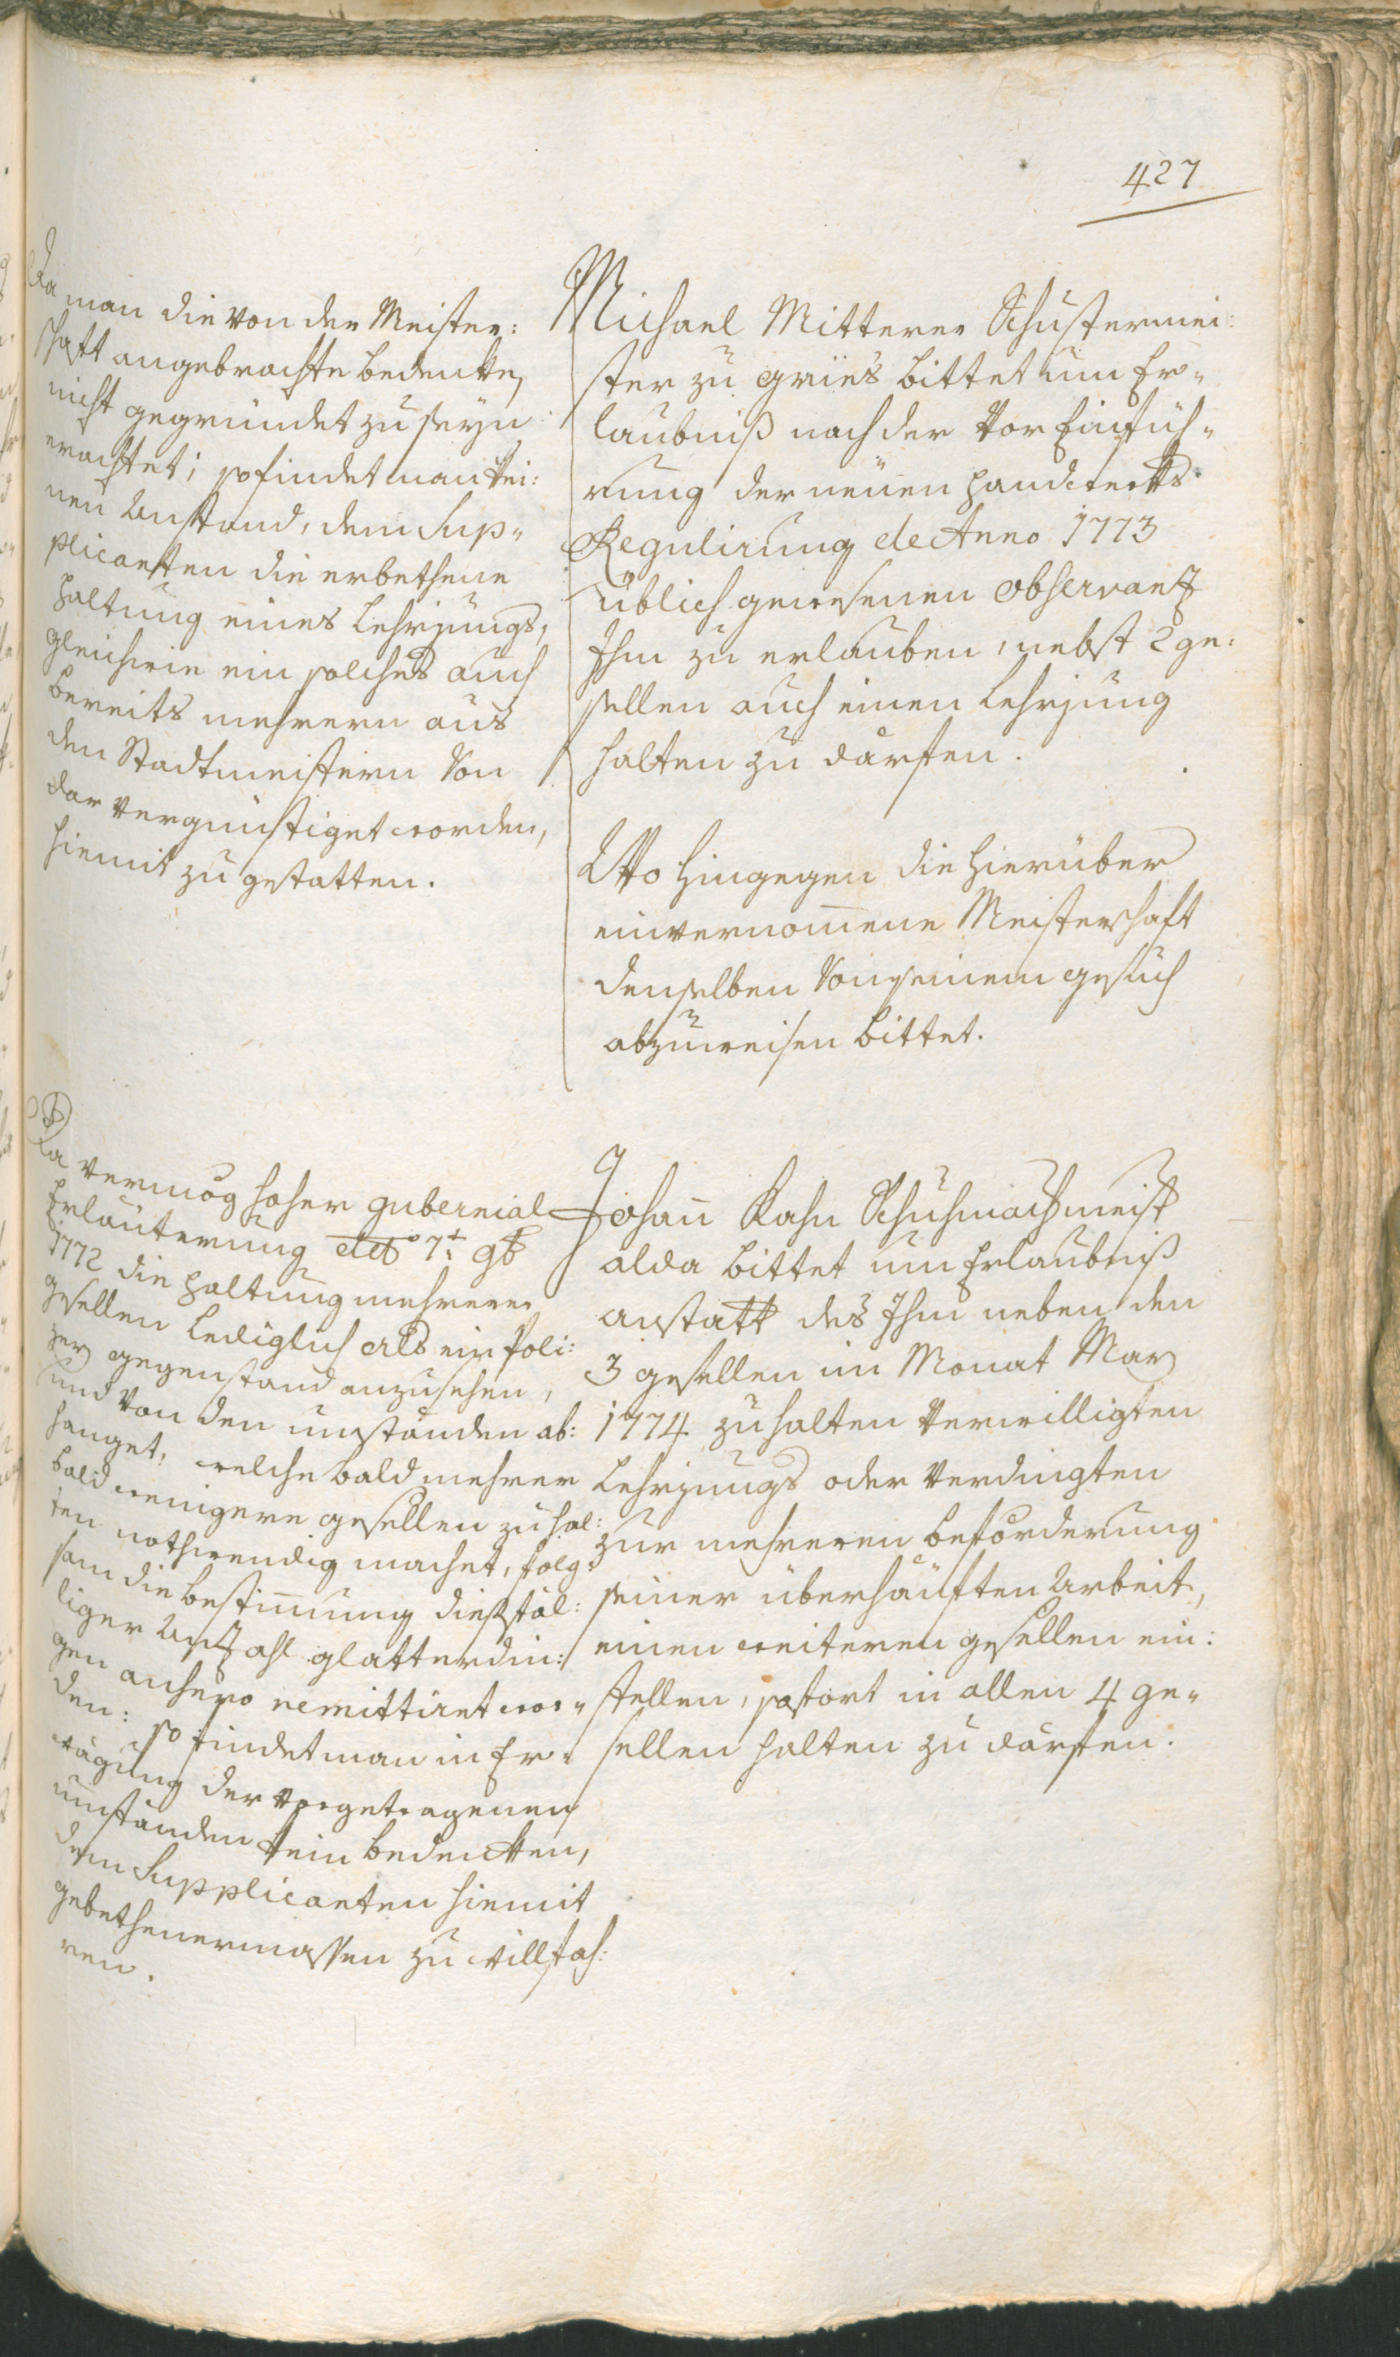 427
Da man die von der Meister:
schaft angebrachte bedenkn
nicht gegründet zu seyn
erachtet; so findet man kei:
nen Anstand, dem Sup„
plicanten die erbethene
Haltung eines Lehrjungs,
gleichwie ein solches auch
bereits mehrern aus
den Stadtmeistern von
dar vergünstiget worden,
hiemit zu gestatten.
Michael Mitterer Schustermei:
ster zu gries bittet um Er„
laubniß nach der vor Einfüh„
rung der neüen Handwerks
Regulirung de Anno 1773
üblich gewesenen observanz
Ihm zu erlauben, nebst 2 ge:
sellen auch einen Lehrjung
halten zu därfen.
Wo hingegen die hierüber
einvernom̄ene Meisterschaft
denselben von seinem gesuch
abzuweisen bittet.
Da vermög hoher gubernial
Erläuterung ddto 7t 9b
1772 die Haltung mehrerer
gesellen lediglich als ein Poli:
zey gegenstand anzusehen,
und von den umständen ab:
hanget, welche bald mehrer
bald wenigere gesellen zu hal:
ten nothwendig machet, folg:
sam die bestim̄ung dießfäl:
liger Anzahl glatterdin:
gen anhero remittiret wor„
den: so findet man in Er„
wägung der vorgetragenen
umständen kein bedencken,
dem Supplicanten hiemit
gebethenermassen zu willfah:
ren.
Johan̄ Kahn Schuhmachmeist
alda bittet um Erlaubniß
anstatt des Ihm neben den
3 gesellen im Monat May
1774 zuhalten verwilligten
Lehrjungs oder verdingten
zur mehreren beförderung
seiner überhäuften Arbeit,
einen weiteren gesellen ein:
stellen, sofort in allen 4 ge„
sellen halten zu därfen.